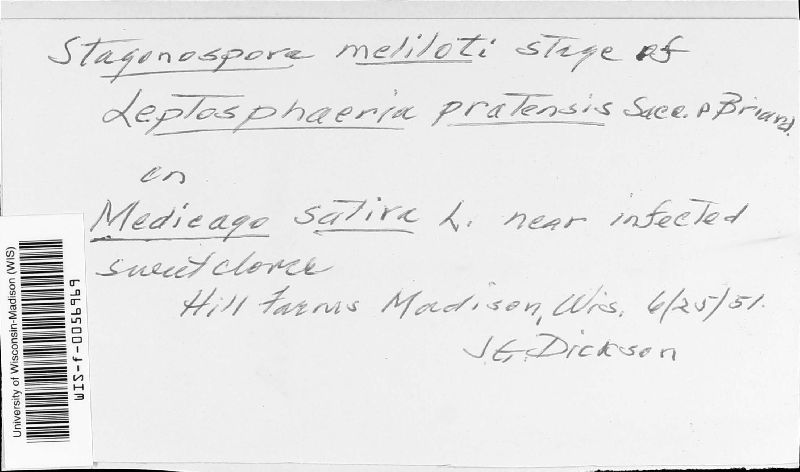 Stagonospora meliloti stage of
Leptosphaeria pratensis Sacc. & Briard.
on
Medicago sativa L. near infected
sweetclover
Hill Farms Madison, Wis. 6/25/51.
J G. Dickson
University of Wisconsin-Madison (WIS)
WIS-f-0056969